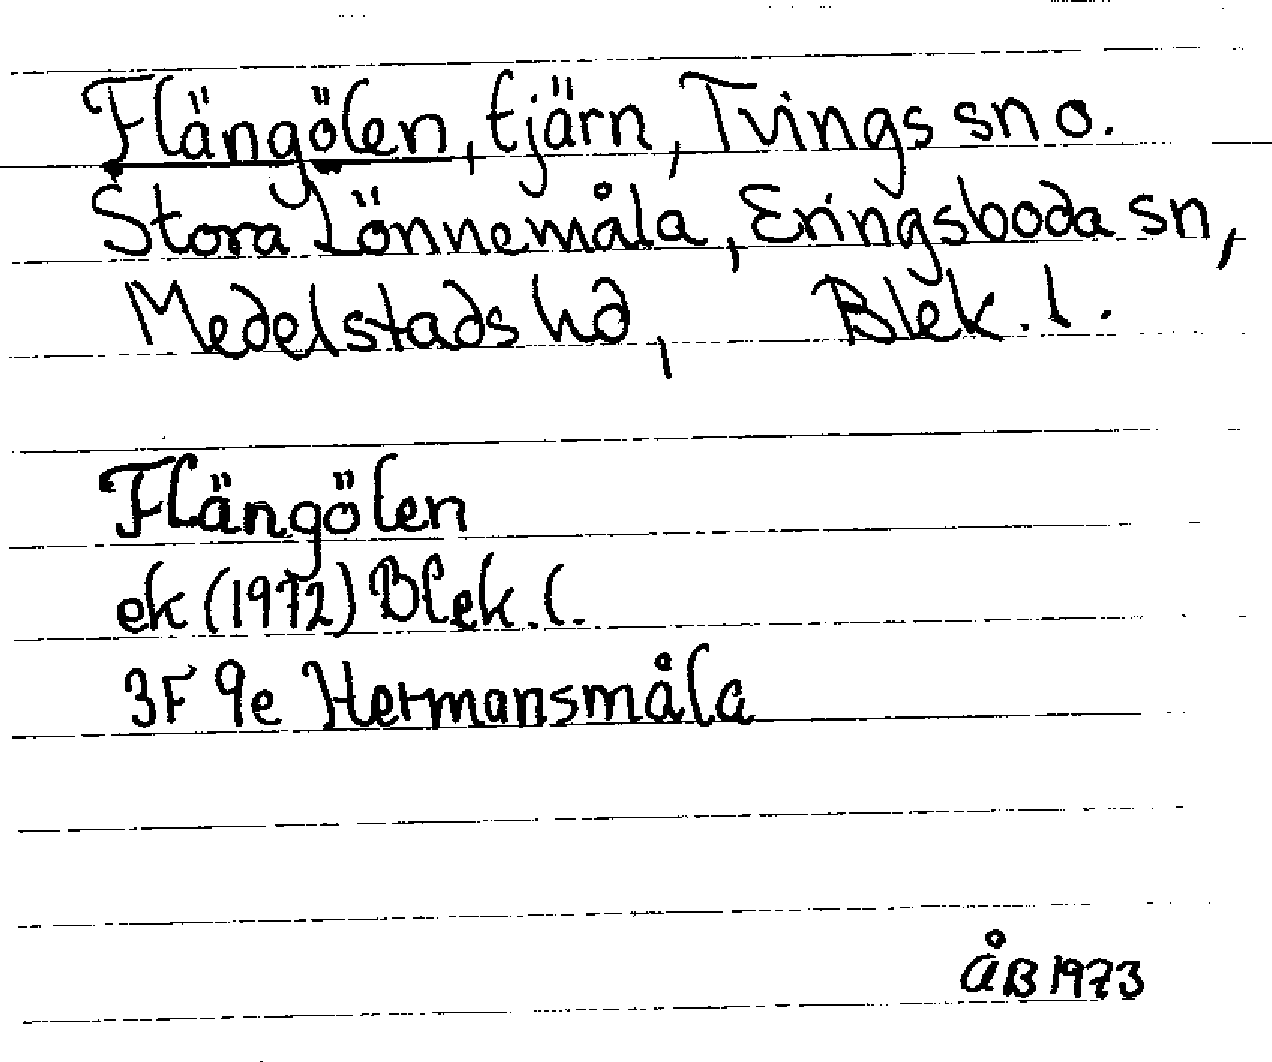 Flängölen, tjärn, Tvings sn o.
Stora Lönnemåla, Eringsboda sn,
Medelstads hd, Blek. l.
Flängölen
ek (1972) Blek. l.
3F 9e Hermansmåla
ÅB 1973